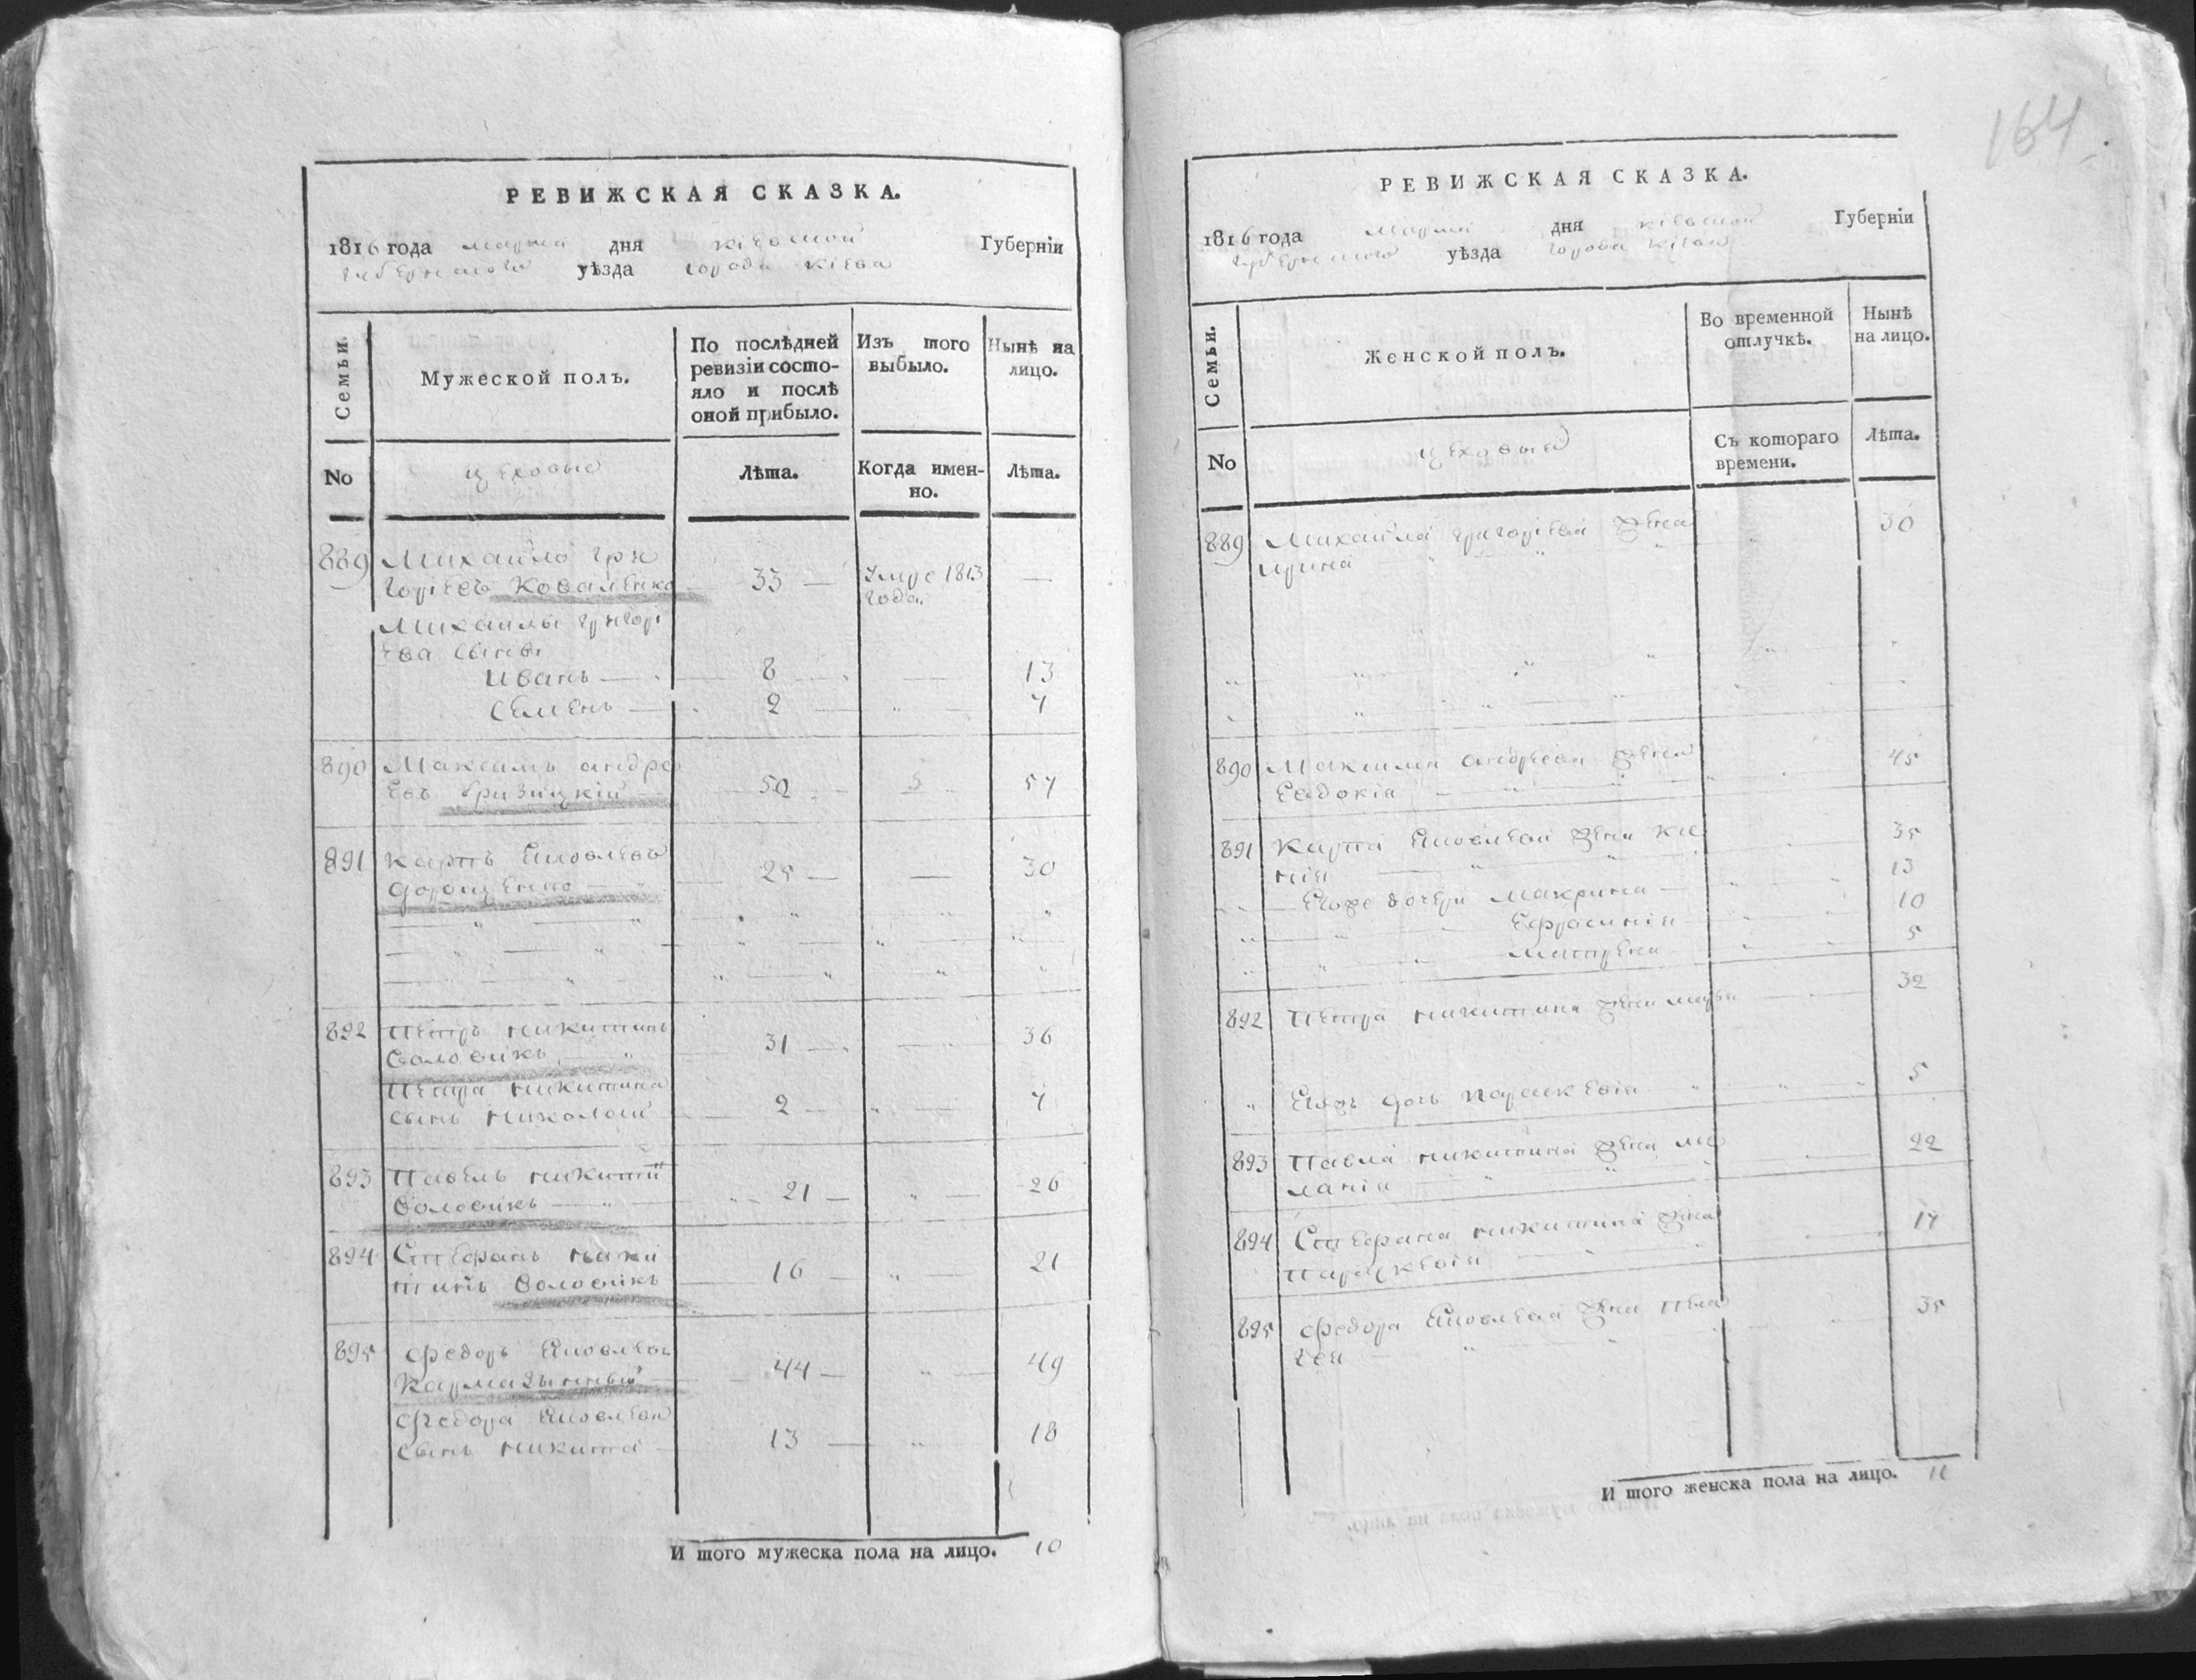 164
РЕВИЖСКАЯ СКАЗКА.
1816 года марта дня Кіевской Губерніи
губернскаго уѣзда города Кіева
Семьи.
Мужеской полъ.
По послѣдней
ревизіи состо-
яло и послѣ
оной прибыло.
Изъ того
выбыло.
Нынѣ на
лицо.
No
цеховые
Лѣта.
Когда имен-
но.
Лѣта.
889 Михайло Гри
горіевъ Коваленко 33 умре 1813
года
Михайлы Григорі
ева сыны
Иванъ 8 13
Семенъ 2 7
890 Максимъ Андре
евъ 52 57
891 Карпъ Яковлевъ 25 30
Дорошенко
892 Петръ Никитинъ 31 36
Воловикъ
Петра Никитина
сынъ Николай 2 7
893 Павелъ Никити
Воловикъ 21 26
894 Стефанъ Ники
тинъ Воловикъ 16 21
895 Федоръ Яковлевъ
Кармазынный 44 49
Федора Яковлева
сынъ Никита 13 18
И того мужеска пола на лицо. 10
РЕВИЖСКАЯ СКАЗКА.
1816 года марта дня Кіевской Губерніи
губернскаго уѣзда города Кіева
Семьи.
Женской полъ.
Во временной
отлучкѣ.
Нынѣ
на лицо.
No
цеховые
Съ котораго
времени.
Лѣта.
889 Михайла Григоріева жена 30
Ирина
890 Максима Андреева жена 45
Евдокія
891 Карпа Яковлева жена Ксе 35
нія
Егоже дочери Макрина 13
Ефросинія 10
Матрена 5
892 Петра Никитина жена Марья 32
Егожъ дочь Параскевія 5
893 Павла Никитина жена Ме 22
ланія
894 Стефана Никитина жена 19
Параскевія
895 Федора Яковлева жена Пела 35
гея
И того женска пола на лицо. 11